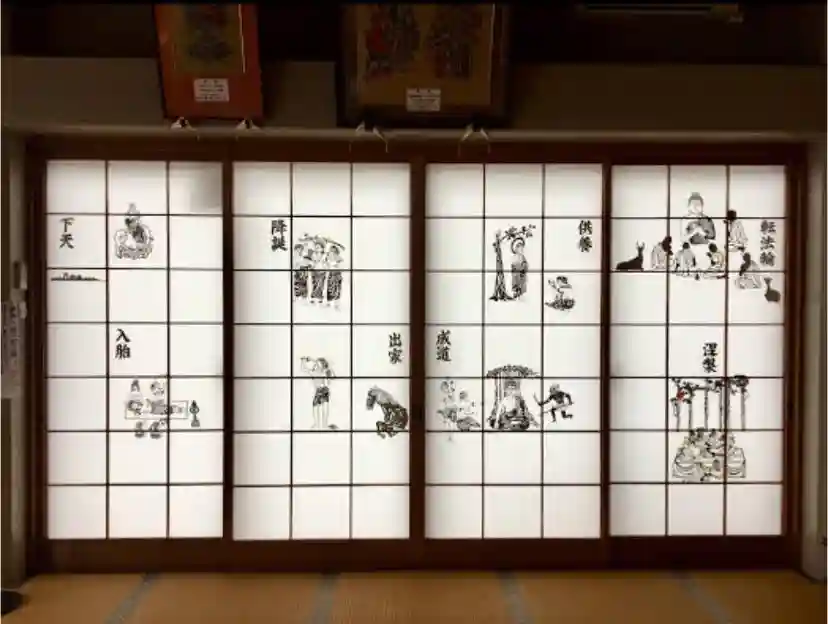 下天
入胎
降誕
出家
成道
供養
転法輪
涅槃